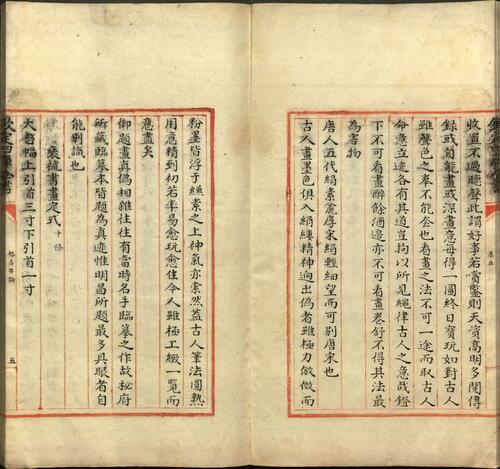 收置不過聽聲此謂好事若賞鑒則天資高明多閱傳
録或自能畫或深畫意每得一圖終日寶玩如對古人
雖聲色之奉不能奪也看畫之法不可一途而取古人
命意立迹各有其道豈拘以所見繩律古人之意哉鐙
下不可看畫醉餘酒邊亦不可看畫卷舒不得其法最
為害物
唐人五代絹素麤厚宋絹輕細望而可别唐宋也
古人畫墨色俱入絹縷精神迥出偽者雖極力倣做而
粉墨皆浮于縑素之上神氣亦索然蓋古人筆法圓熟
用意精到初若率易愈玩愈佳今人雖極工緻一覧而
意盡矣
御題畫真偽相雜往往有當時名手臨摹之作故秘府
所藏臨摹本皆題為真迹惟明昌所題最多具眼者自
能别識也
裝褫書畫定式 十條
大整幅上引首三寸下引首二寸
五